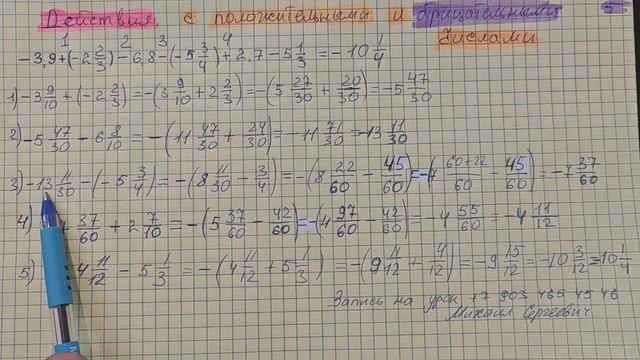 Действия с положительными и отрицательными 5
числами
1 2 3 4
-3,9+(-2 2/3)-6,8-(-5 3/4)+2.7-5 1/3=-10 1/4
1)-3 9/10+(-2 2/3)=-(3 9/10+2 2/3)=-(5 27/30+20/30)=-5 47/30
2)-5 47/30-6 8/10=-(11 47/30+24/30)=-11 71/30=-13 11/30
3)-13 11/30-(-5 3/4)=-(8 11/30-3/4)=-(8 22/60-45/60)=-(7 60+22/60-45/60)=-7 37/60
4) 37/60+2 7/10=-(5 37/60-42/60)=-(4 97/60-42/60)=-4 55/60=-4 11/12
5) 4 11/12-5 1/3=-(4 11/12+5 1/3)=-(9 11/12+4/12)=-9 15/12=-10 3/12=10 1/4
Запись на урок +7 903 465 45 46
Михаил Сергеевич